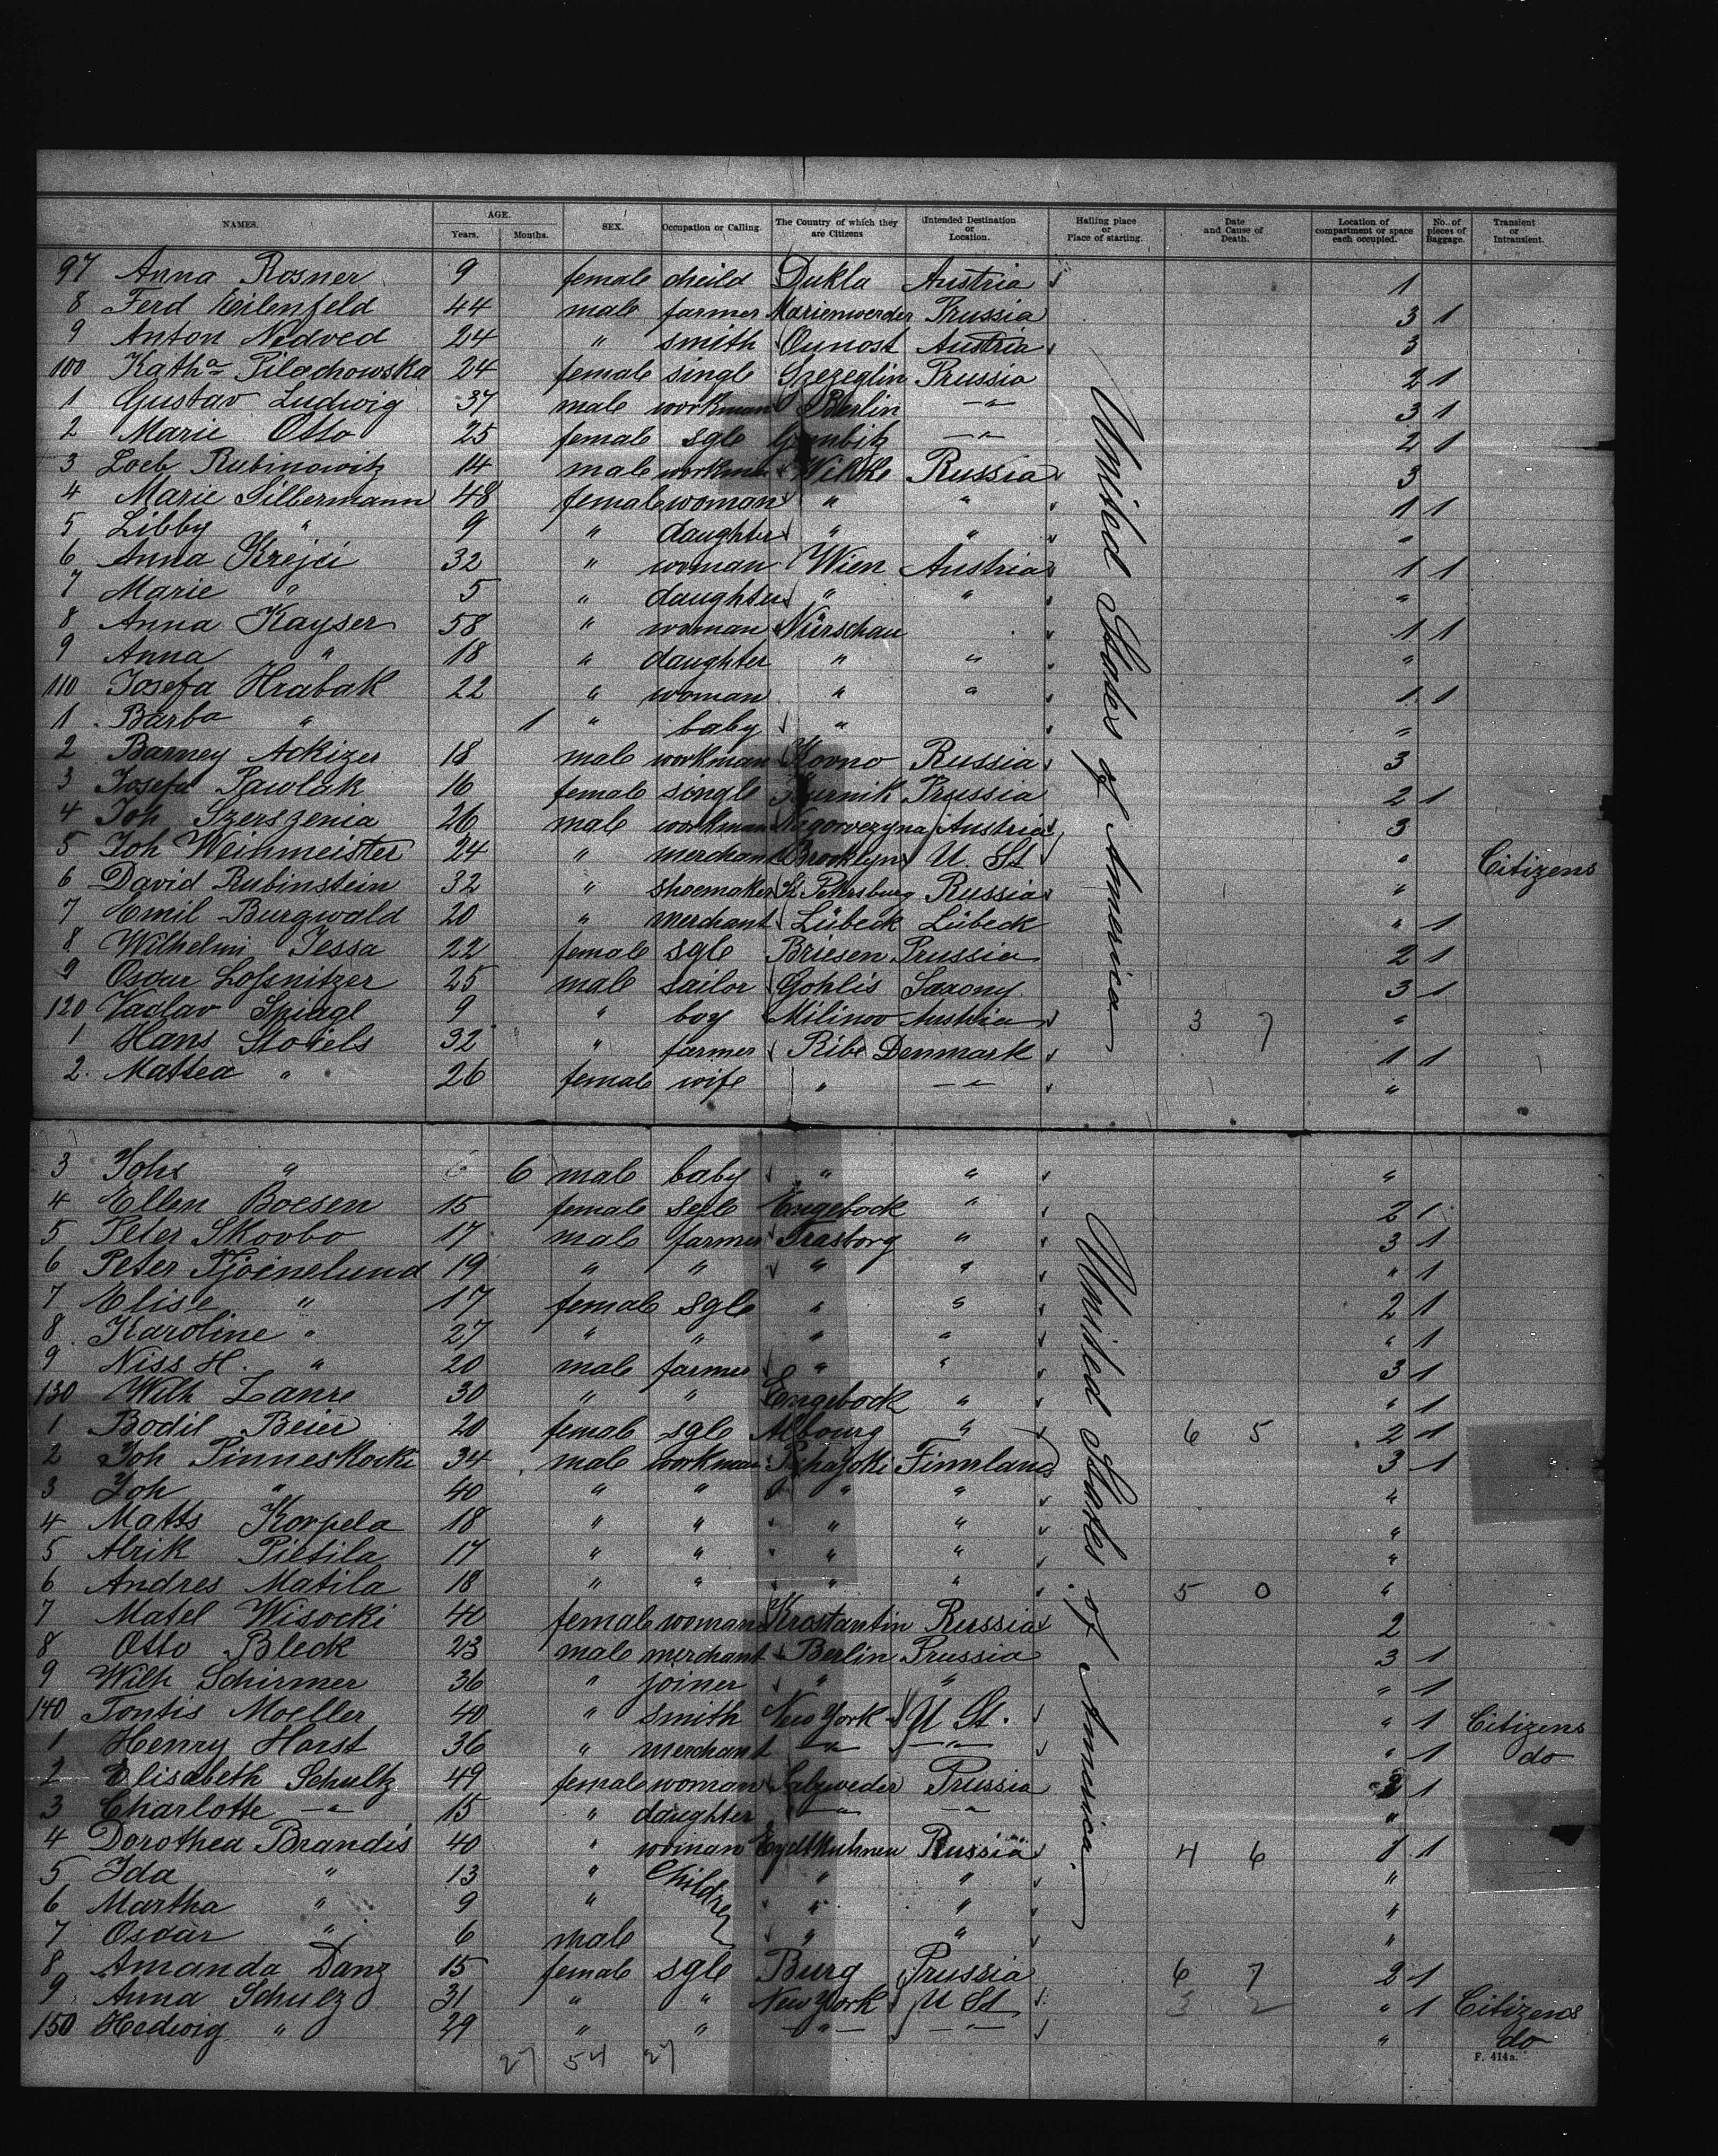 NAMES. AGE. Years. Months. SEX. Occupation or Calling. The Country of which they are Citizens Intended Destination or Location. Hailing place or Place of starting. Date and Cause of Death. Location of compartment or space each occupied. No. of pieces of Baggage. Transient or Intransient.
97 Anna Rosner 9 female cheild Dukla Austria 1
8 Ferd Eilenfeld 44 male farmer Marienwerder Prussia 3 1
9 Anton Nedved 24 " smith Austria 3
100 Katha Pilachowska 24 female single Prussia 2 1
1 Gustav Ludwig 37 male workman Berlin —"— 3 1
2 Marie Otto 25 female sgle —"— 2 1
3 Loeb Rubinowitz 14 male workman Russia 3
4 Marie Silbermann 48 female woman " " 1 1
5 Libby " 9 " daughter " " "
6 Anna Krejci 32 " woman Wien Austria 1 1
7 Marie " 5 " daughter " " "
8 Anna Kayser 58 " woman Nürschau 1 1
9 Anna " 18 " daughter " " "
110 Josefa Hrabak 22 " woman " " 1 1
1 Barba " 1 " baby " "
2 Barney Ackizer 18 male workman Kovno Russia 3
3 Josefa Pawlak 16 female single Prussia 2 1
4 Joh Szerszenia 26 male workman Austria 3
5 Joh Weinmeister 24 " merchant Brooklyn U. St " Citizens
6 David Rubinstein 32 " shoemaker St Petersburg Russia "
7 Emil Burgwald 20 " merchant Lübeck Lübeck " 1
8 Wilhelmi Jessa 22 female sgle Briesen Prussia 2 1
9 Oscar Loßnitzer 25 male sailor Gohlis Saxony 3 1
120 Vaclav Spiegl 9 " boy Milinov Austria 3 7 "
1 Hans Stoiels 32 " farmer Ribe Denmark 1 1
2. Mattea " 26 female wife " —"— "
United States of America
3 Johs " 6 male baby " " "
4 Ellen Boesen 15 female sgle Engebock " 2 1
5 Peter Skovbo 17 male farmer " 3 1
6 Peter Tjoinelund 19 " " " " " 1
7 Elise " 17 female sgle " " 2 1
8 Karoline " 27 " " " " " 1
9 Niss H. " 20 male farmer " " 3 1
130 Wilh Lanre 30 " " Engebock " " 1
1 Bodil Beier 20 female sgle Albourg " 6 5 2 1
2 Joh Pinneskocki 34 male workman Finnland 3 1
3 Joh " 40 " " " " "
4 Matts Korpela 18 " " " " "
5 Alrik Pietila 17 " " " " "
6 Andres Matila 18 " " " " 5 0 "
7 Matel Wisocki 40 female woman Krostantin Russia 2
8 Otto Bleck 23 male merchant Berlin Prussia 3 1
9 Wilh Schirmer 36 " joiner " " " 1
140 Tontis Moeller 40 " smith New York U St. " 1 Citizens
1 Henry Horst 36 " merchant —"— —"— " 1 do
2 Elisabeth Schultz 49 female woman Salzweder Prussia 1
3 Charlotte —"— 15 " daughter —"— —"— "
4 Dorothea Brandis 40 " woman Eydtkuhnen Russia 4 6 1 1
5 Ida " 13 " Children " " "
6 Martha " 9 " " " "
7 Oscar " 6 male " " "
8 Amanda Danz 15 female sgle Burg Prussia 6 7 2 1
9 Anna Schulz 31 " " New York U St 3 2 " 1 Citizens
150 Hedwig " 29 " " —"— —"— " do
United States of America
27 54 27
F. 414a.